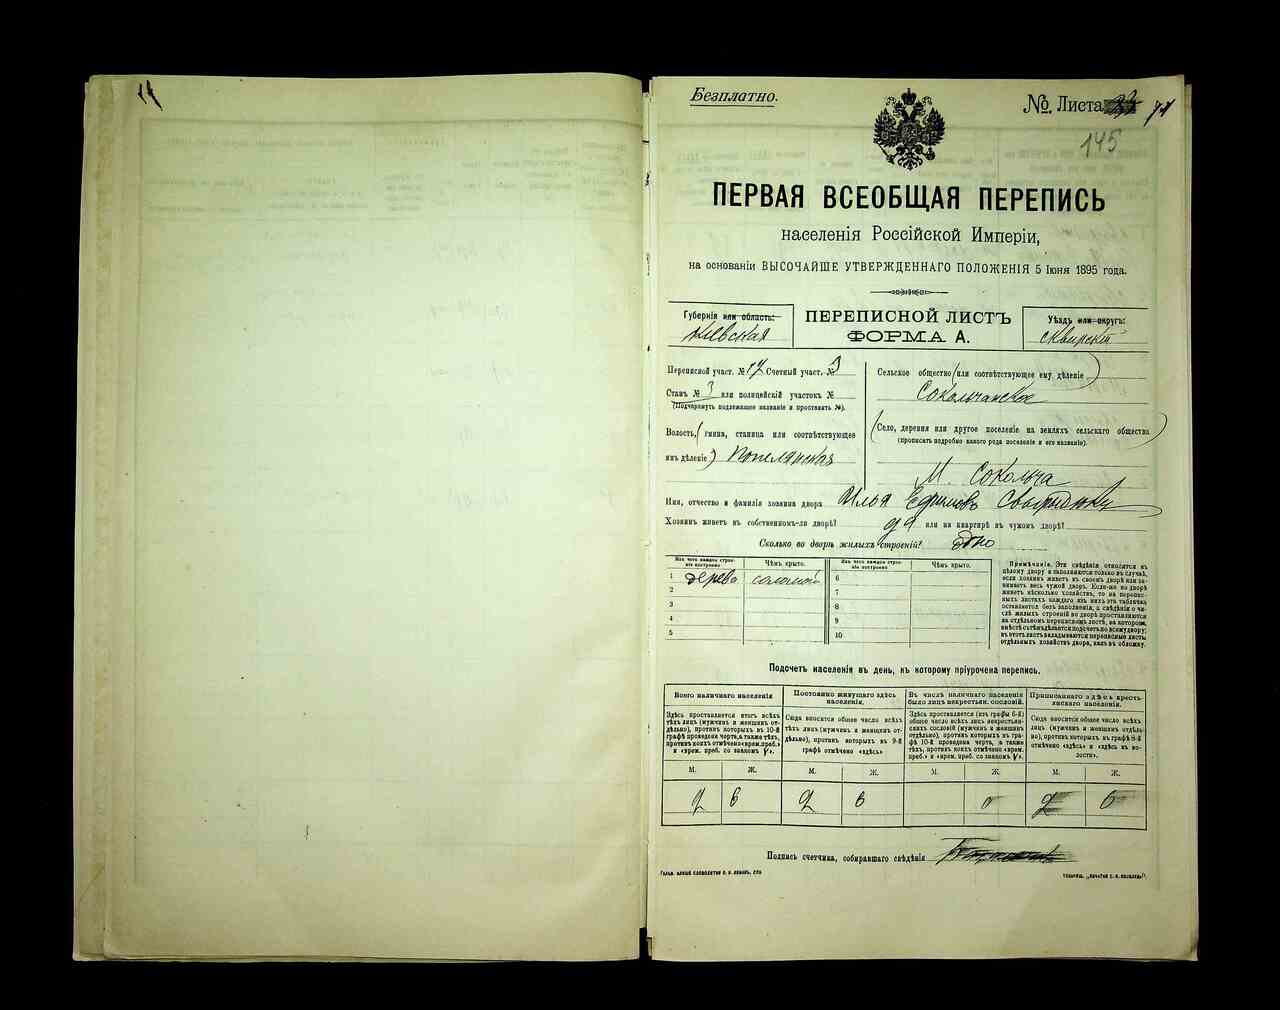 Безплатно.
№ Листа
145
ПЕРВАЯ ВСЕОБЩАЯ ПЕРЕПИСЬ
населенія Россійской Имперіи,
на основаніи ВЫСОЧАЙШЕ УТВЕРЖДЕННАГО ПОЛОЖЕНІЯ 5 Іюня 1895 года.
Губернія или область:
Кіевская
ПЕРЕПИСНОЙ ЛИСТЪ
ФОРМА А.
Уѣздъ или округъ:
Сквирскій
Переписной участ. № 17 Счетный участ. № 3
Станъ № 3 или полицейскій участокъ №
(Подчеркнуть подлежащее названіе и проставить №).
Волость, (гмина, станица или соотвѣтствующее
имъ дѣленіе) Попелянская
Сельское общество (или соотвѣтствующее ему дѣленіе)
Сокольчанское
(Село, деревня или другое поселеніе на земляхъ сельскаго общества)
(прописать подробно какого рода поселеніе и его названіе).
М. Сокольча
Имя, отчество и фамилія хозяина двора Илья Ефимовъ
Хозяинъ живетъ въ собственномъ-ли дворѣ? да или на квартирѣ въ чужомъ дворѣ?
Сколько во дворѣ жилыхъ строеній? одно
Изъ чего каждое строеніе построено
Чѣмъ крыто.
Изъ чего каждое строеніе построено
Чѣмъ крыто.
1 дерева соломой 6
2 7
3 8
4 9
5 10
Примѣчаніе. Эти свѣдѣнія относятся къ
цѣлому двору и заполняются только въ случаѣ,
если хозяинъ живетъ въ своемъ дворѣ или занимаетъ
весь чужой дворъ. Если-же во дворѣ
живетъ нѣсколько хозяйствъ, то на переписныхъ
листахъ каждаго изъ нихъ эта табличка
оставляется безъ заполненія, а свѣдѣнія о числѣ
жилыхъ строеній во дворѣ проставляются
на отдѣльномъ переписномъ листѣ, на которомъ
вмѣстѣ съ тѣмъ дѣлается подсчетъ по всему двору;
въ этотъ листъ вкладываются переписные листы
отдѣльныхъ хозяйствъ двора, какъ въ обложку.
Подсчетъ населенія въ день, къ которому пріурочена перепись.
Всего наличнаго населенія
Здѣсь проставляется итогъ всѣхъ
тѣхъ лицъ (мужчинъ и женщинъ отдѣльно),
противъ которыхъ въ 10-й
графѣ проведена черта, а также тѣхъ,
противъ коихъ отмѣчено «врем. преб.»
и «врем. преб. со знакомъ V».
Постоянно живущаго здѣсь
населенія.
Сюда вносится общее число всѣхъ
тѣхъ лицъ (мужчинъ и женщинъ отдѣльно),
противъ которыхъ въ 9-й
графѣ отмѣчено «здѣсь»
Въ числѣ наличнаго населенія
было лицъ некрестьян. сословій.
Здѣсь проставляется (изъ графы 6-й)
общее число всѣхъ лицъ некрестьянскихъ
сословій (мужчинъ и женщинъ
отдѣльно), противъ которыхъ въ графѣ
10-й проведена черта, а также
тѣхъ, противъ коихъ отмѣчено «врем.
преб.» и «врем. преб. со знакомъ V».
Приписаннаго здѣсь крестьянскаго
населенія.
Сюда вносится общее число всѣхъ
лицъ (мужчинъ и женщинъ отдѣльно),
противъ которыхъ въ графѣ 8-й
отмѣчено «здѣсь» и «здѣсь въ волости».
М. Ж. М. Ж. М. Ж. М. Ж.
2 6 2 6 2 6
Подпись счетчика, собиравшаго свѣдѣнія